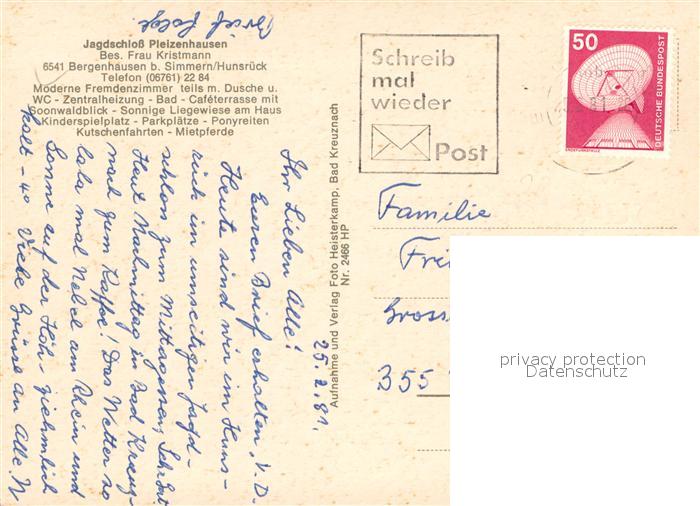 Brief folgt.
Jagdschloß Pleizenhausen
Bes. Frau Kristmann
6541 Bergenhausen b. Simmern/Hunsrück
Telefon (06761) 22 84
Moderne Fremdenzimmer teils m. Dusche u.
WC - Zentralheizung - Bad - Caféterrasse mit
Soonwaldblick - Sonnige Liegewiese am Haus
Kinderspielplatz - Parkplätze - Ponyreiten
Kutschenfahrten - Mietpferde
25.2.81.
Ihr Lieben Alle!
Euren Brief erhalten, V. D.
Heute sind wir im Huns-
rück im umseitigen Jagd-
schloss zum Mittagessen, Sehr Gut
Heut Nachmittag in Bad Kreuz-
nach zum Kaffee! Das Wetter so
lala mal Nebel am Rhein und
Sonne auf der Höh, ziehmlich
kalt -4° Viele Grüsse an Alle. N
Aufnahme und Verlag Foto Heisterkamp, Bad Kreuznach
Nr. 2466 HP
Schreib
mal
wieder
Post
50
DEUTSCHE BUNDESPOST
ERDEFUNKSTELLE
Familie
Fri
Gross
355
privacy protection
Datenschutz